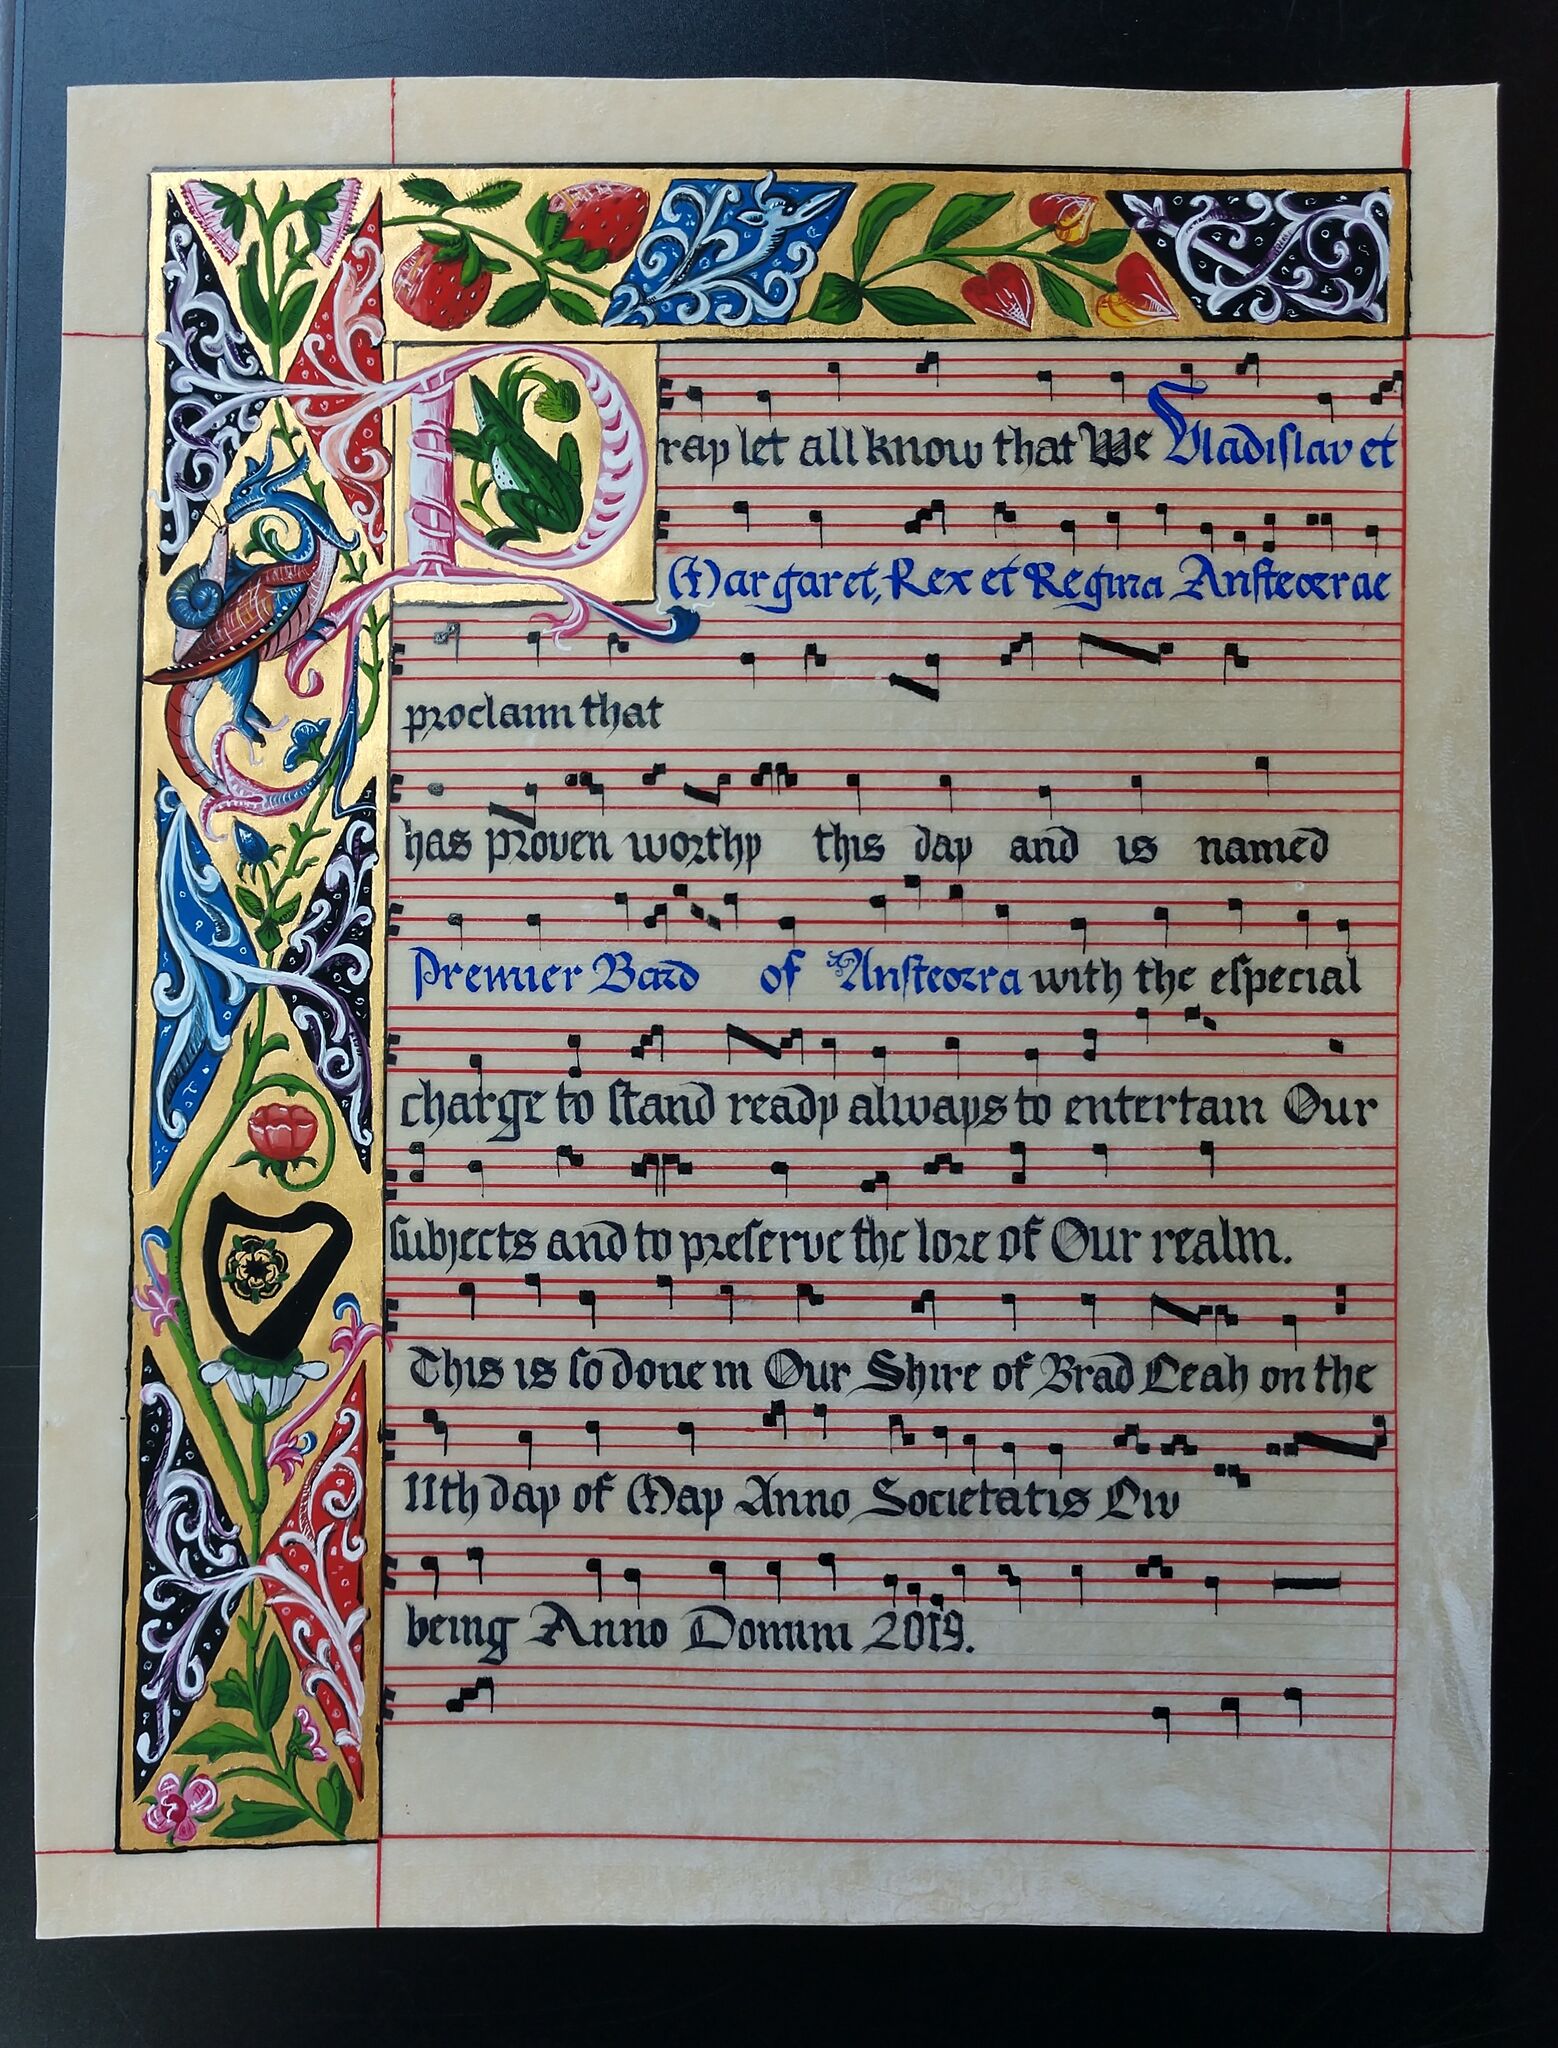 Pray let all know that We Vladislav et
Margaret, Rex et Regina Ansteorrae
proclaim that
has proven worthy this day and is named
Premier Bard of Ansteorra with the eſpecial
charge to ſtand ready always to entertain Our
ſubjects and to preſerve the lore of Our realm.
This is ſo done in Our Shire of Brad Leah on the
11th day of May Anno Societatis Liv
being Anno Domini 2019.